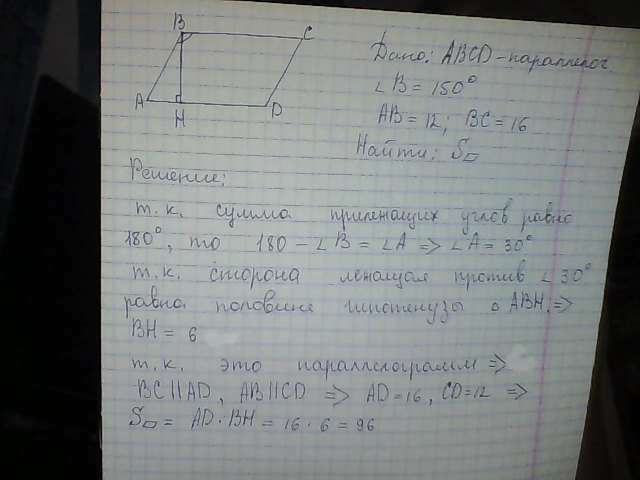 B C
A H D
Дано: ABCD - параллелог.
∠B = 150°
AB = 12; BC = 16
Найти: S▱
Решение:
т.к. сумма прилежащих углов равна
180°, то 180 - ∠B = ∠A => ∠A = 30°
т.к. сторона лежащая против ∠30°
равна половине гипотенузы △ ABH =>
BH = 6
т.к. это параллелограмм =>
BC || AD, AB || CD => AD = 16, CD = 12 =>
S▱ = AD · BH = 16 · 6 = 96